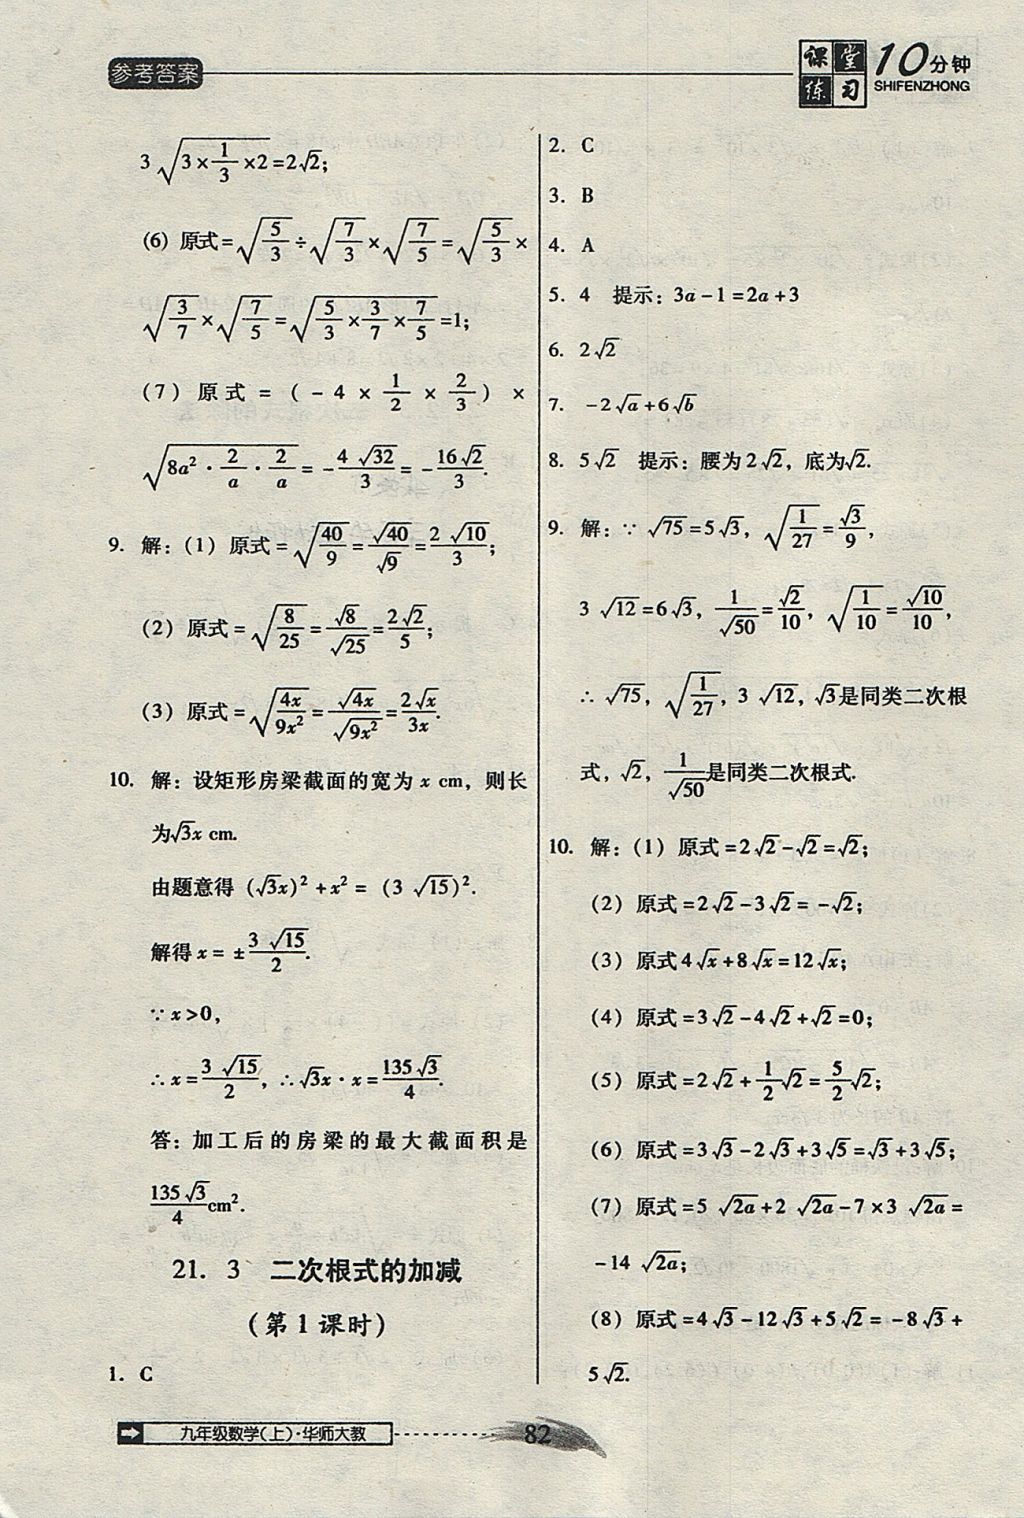 参考答案
课堂练习 10分钟
SHIFENZHONG
3√(3×1/3×2)=2√2;
(6) 原式=√(5/3)÷√(7/3)×√(7/5)=√(5/3)×
√(3/7)×√(7/5)=√(5/3×3/7×7/5)=1;
(7) 原式=(-4×1/2×2/3)×
√(8a²·2/a·2/a)=-4√32/3=-16√2/3.
9. 解:(1) 原式=√(40/9)=√40/√9=2√10/3;
(2) 原式=√(8/25)=√8/√25=2√2/5;
(3) 原式=√(4x/9x²)=√4x/√9x²=2√x/3x.
10. 解:设矩形房梁截面的宽为 x cm,则长
为√3x cm.
由题意得 (√3x)²+x²=(3√15)².
解得 x=±3√15/2.
∵x>0,
∴x=3√15/2,∴√3x·x=135√3/4.
答:加工后的房梁的最大截面积是
135√3/4cm².
21.3 二次根式的加减
(第1课时)
1. C
2. C
3. B
4. A
5. 4 提示:3a-1=2a+3
6. 2√2
7. -2√a+6√b
8. 5√2 提示:腰为2√2,底为√2.
9. 解:∵√75=5√3,√(1/27)=√3/9,
3√12=6√3,1/√50=√2/10,√(1/10)=√10/10,
∴√75,√(1/27),3√12,√3是同类二次根
式,√2,1/√50是同类二次根式.
10. 解:(1) 原式=2√2-√2=√2;
(2) 原式=2√2-3√2=-√2;
(3) 原式4√x+8√x=12√x;
(4) 原式=3√2-4√2+√2=0;
(5) 原式=2√2+1/2√2=5/2√2;
(6) 原式=3√3-2√3+3√5=√3+3√5;
(7) 原式=5√2a+2√2a-7×3√2a=
-14√2a;
(8) 原式=4√3-12√3+5√2=-8√3+
5√2.
九年级数学(上)·华师大教
82